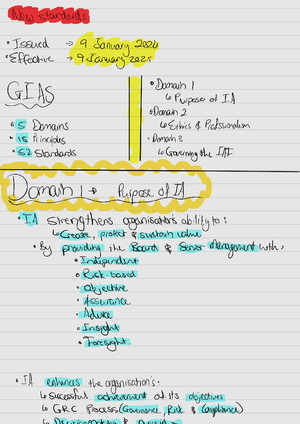 New standards
• Issued → 9 January 2024
• Effective → 9 January 2025
GIAS
• 5 Domains
• 15 Principles
• 52 Standards
• Domain 1
↳ Purpose of IA
• Domain 2
↳ Ethics & Professionalism
• Domain 3
↳ Governing the IAF
Domain 1 → Purpose of IA
• IA strengthens organisation's ability to:
↳ Create, protect & sustain value
• By providing the Board & Senior Management with:
• Independent
• Risk based
• Objective
• Assurance
• Advice
• Insight
• Foresight
• IA enhances the organisation's:
↳ Successful achievement of its objectives
↳ GRC Process (Governance, Risk & Compliance)